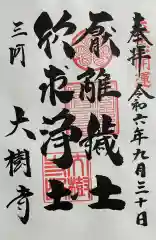 奉拝
令和六年九月三十日
厭離穢土
欣求浄土
三河
大樹寺